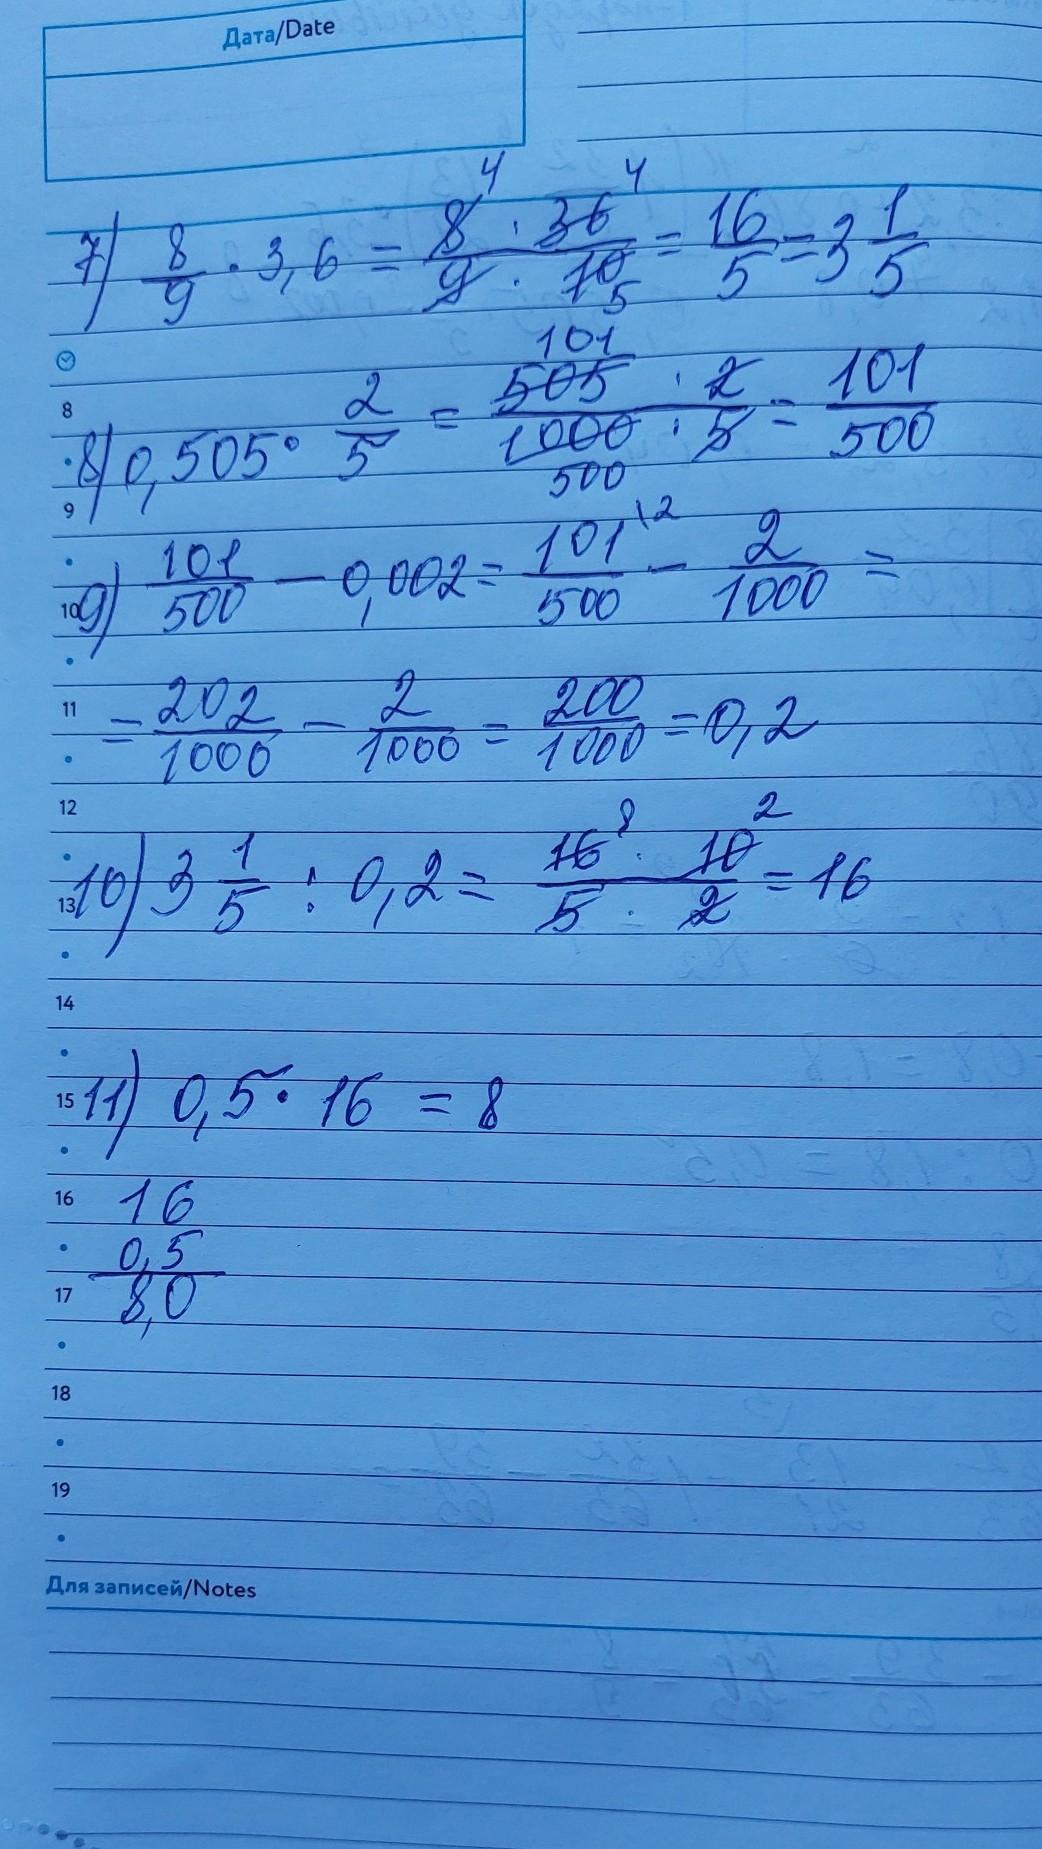 Дата/Date
4 4
7) 8/9 · 3,6 = 8 · 36 / 9 · 10 = 16/5 = 3 1/5
5
101
8
8) 0,505 · 2/5 = 505 · 2 / 1000 · 5 = 101/500
500
9
9) 101/500 - 0,002 = 101/500 \2 - 2/1000 =
10
11
= 202/1000 - 2/1000 = 200/1000 = 0,2
12
8 2
10) 3 1/5 : 0,2 = 16 · 10 / 5 · 2 = 16
13
14
15
11) 0,5 · 16 = 8
16
16
0,5
17
8,0
18
19
Для записей/Notes